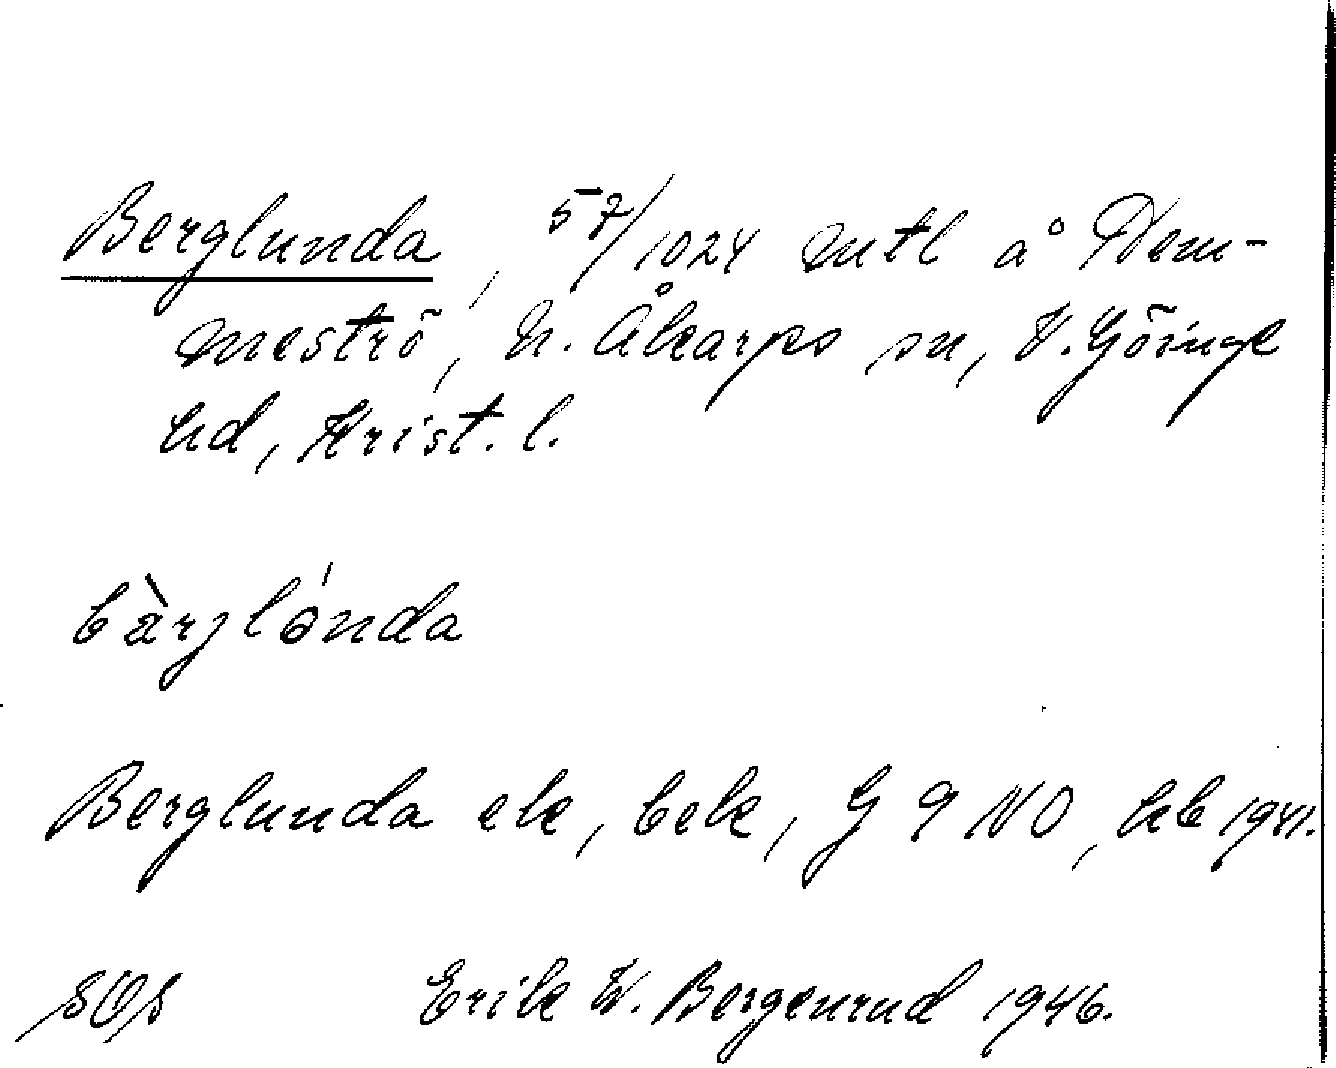 Berglunda, 57/1024 mtl å Dem-
meströ, N. Åkarps sn, V. Göinge
hd, Krist. l.
bàrjlónda
Berglunda ek, bek, G 9 NO, hb 1941.
SOS Erik W. Bergenrud 1946.